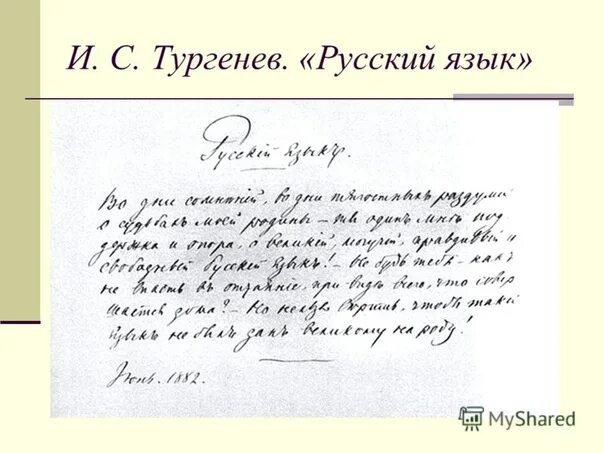 И. С. Тургенев. «Русский язык»
Русскій языкъ.
Во дни сомнѣній, во дни тягостныхъ раздумій
о судьбахъ моей родины – ты одинъ мнѣ под
держка и опора, о великій, могучій, правдивый и
свободный Русскій языкъ! – Не будь тебя – какъ
не впасть въ отчаяніе, при видѣ всего, что совер
шается дома? – Но нельзя вѣрить, чтобы такой
языкъ не былъ данъ великому народу!
Іюнь. 1882.
MyShared